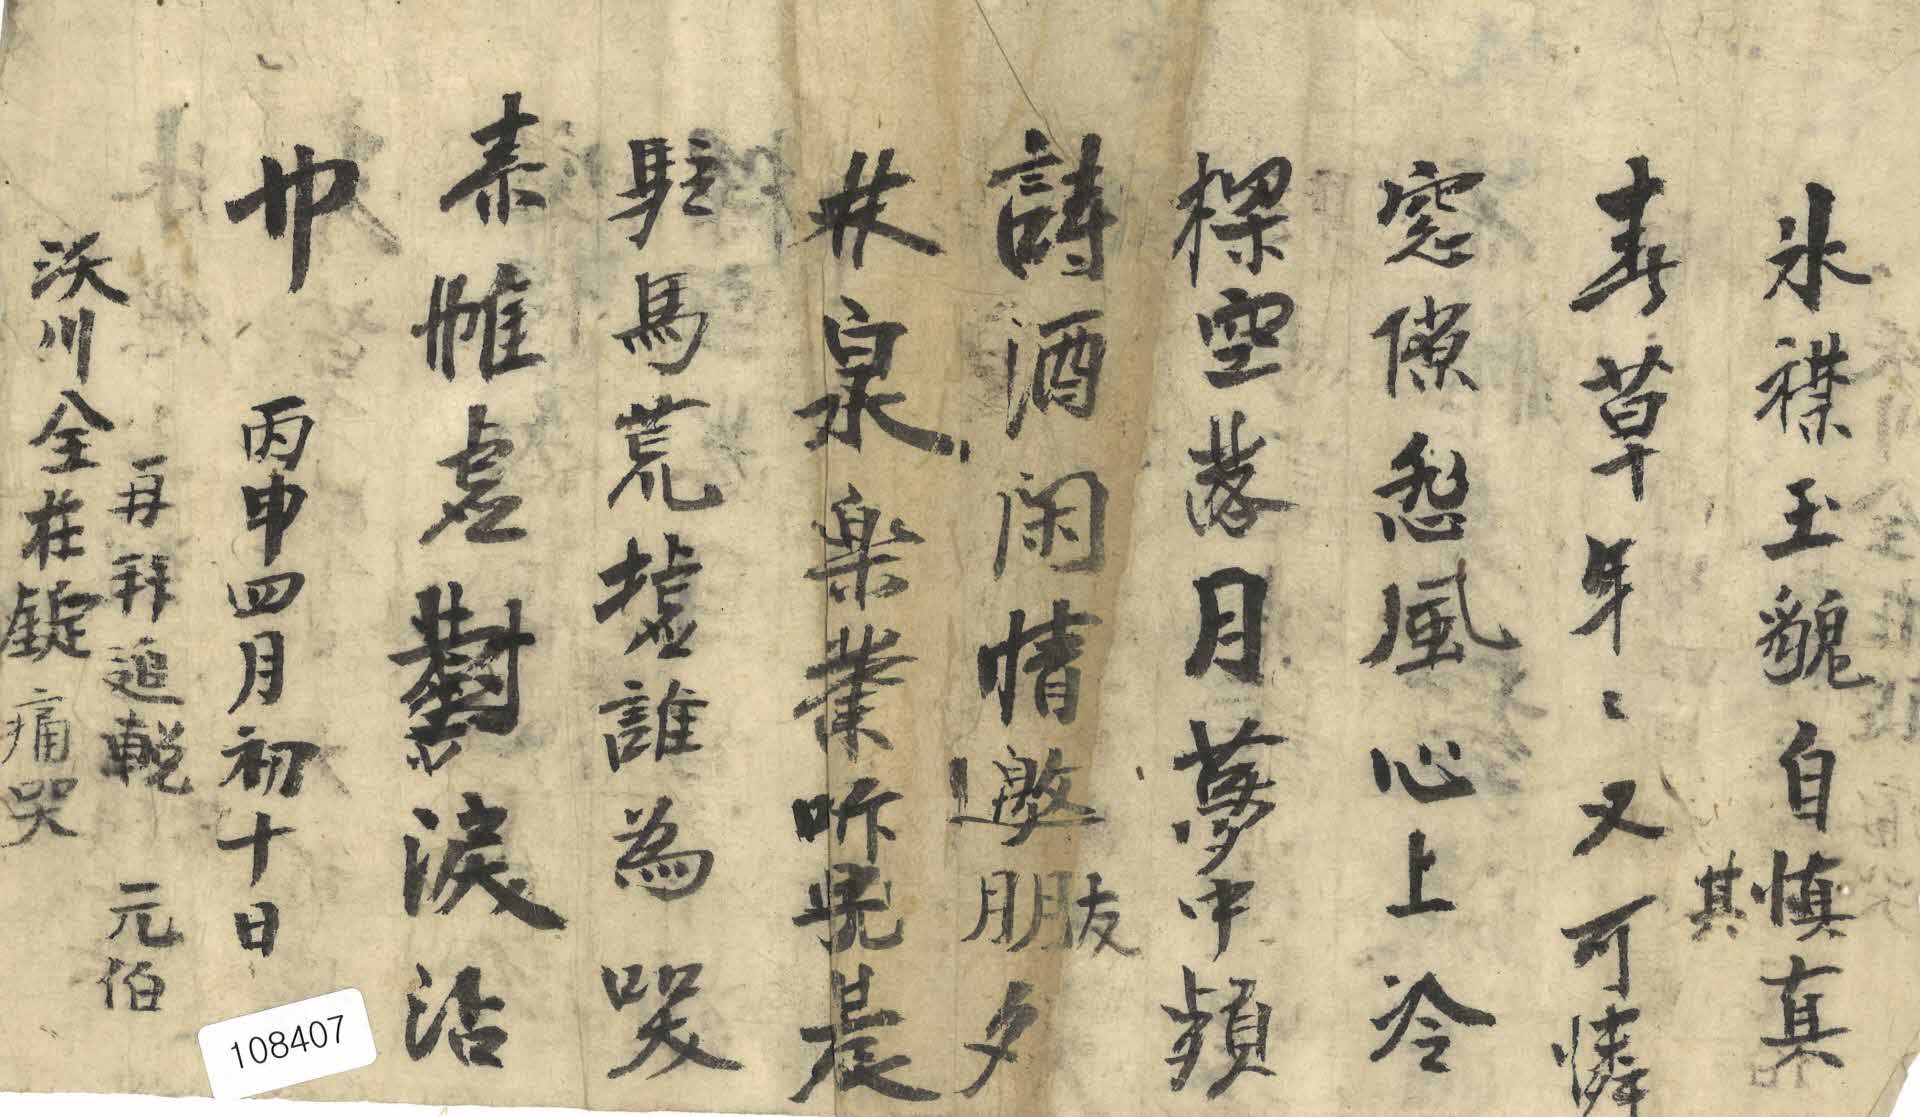 氷襟玉貌自慎其真
春草年〻又可憐
窓隙怨風心上冷
樑空落月夢中頻
詩酒闲情邀朋友夕
林泉楽業听晨
駐馬荒墟誰為哭
素帷虛對淚沾
巾 丙申四月初十日
再拜追輓 元伯
沃川全在錠 痛哭
108407